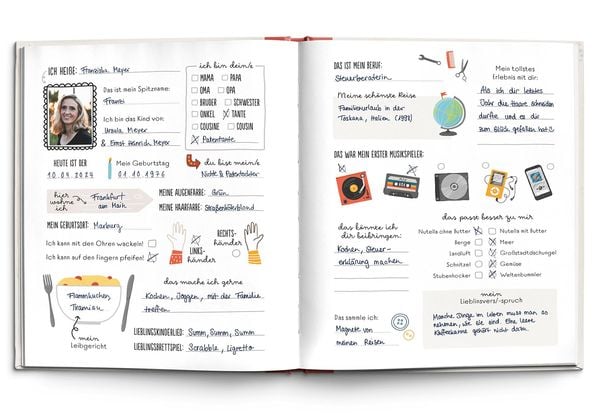 ICH HEIßE: Franziska Meyer
Das ist mein Spitzname:
Franzi
Ich bin das Kind von:
Ursula Meyer
& Ernst Heinrich Meyer
ich bin dein/e
MAMA PAPA
OMA OPA
BRUDER SCHWESTER
ONKEL TANTE
COUSINE COUSIN
Patentante
HEUTE IST DER
10.04.2024
Mein Geburtstag
01.10.1976
du bist mein/e
Nichte & Patentochter
hier wohne ich
Frankfurt
am Main
MEINE AUGENFARBE: Grün
MEINE HAARFARBE: Straßenköterblond
MEIN GEBURTSORT: Marburg
Ich kann mit den Ohren wackeln!
Ich kann auf den Fingern pfeifen!
LINKS-
händer
RECHTS-
händer
Flammkuchen,
Tiramisu
mein
Leibgericht
das mache ich gerne
Kochen, Joggen, mit der Familie
treffen
LIEBLINGSKINDERLIED: Summ, Summ, Summ
LIEBLINGSBRETTSPIEL: Scrabble, Ligretto
DAS IST MEIN BERUF:
Steuerberaterin
Meine schönste Reise
Familienurlaub in der
Toskana, Italien (1998)
Mein tollstes
Erlebnis mit dir:
Als ich dir letztes
Jahr die Haare schneiden
durfte und es dir
zum Glück gefallen hat
DAS WAR MEIN ERSTER MUSIKSPIELER:
das könnte ich
dir beibringen:
Kochen, Steuer-
erklärung machen
das passt besser zu mir
Nutella ohne Butter Nutella mit Butter
Berge Meer
Landluft Großstadtdschungel
Schnitzel Gemüse
Stubenhocker Weltenbummler
Das sammle ich:
Magnete von
meinen Reisen
mein
Lieblingsvers/-spruch
Manche Dinge im Leben muss man so
nehmen, wie sie sind. Eine leere
Kaffeekanne gehört nicht dazu.